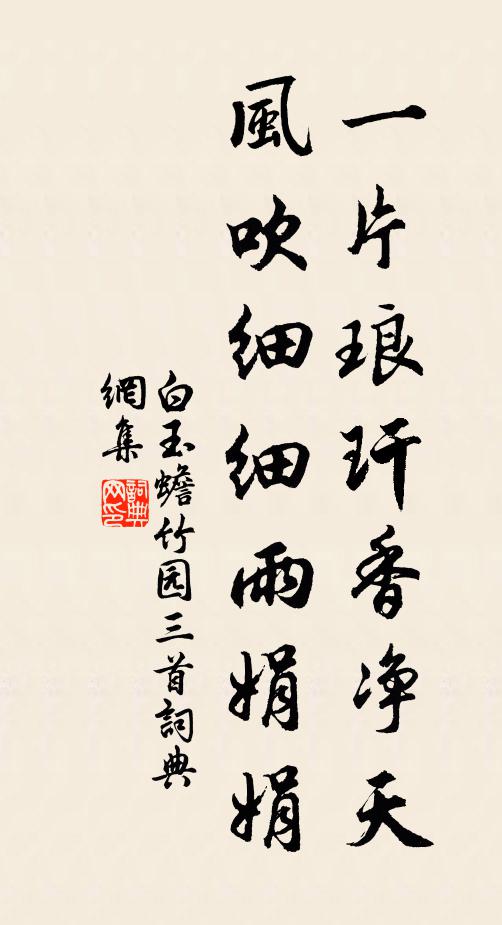 一片琅玕香净天
風吹细细雨娟娟
白玉蟾竹园三首詞典
網集
詞典
网印